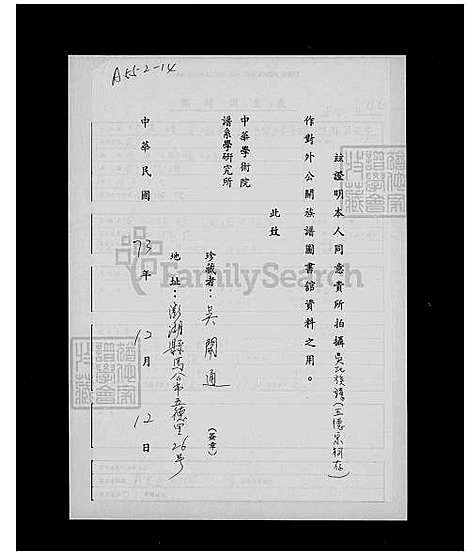 A55-2-14
茲證明本人同意貴所拍攝吳氏族譜
作對外公開族譜圖書館資料之用。
此致
中華學術院
譜系學研究所
珍藏者：吳開通(簽章)
地址：澎湖縣馬公市五德里26号
中華民國73年12月12日
FamilySearch